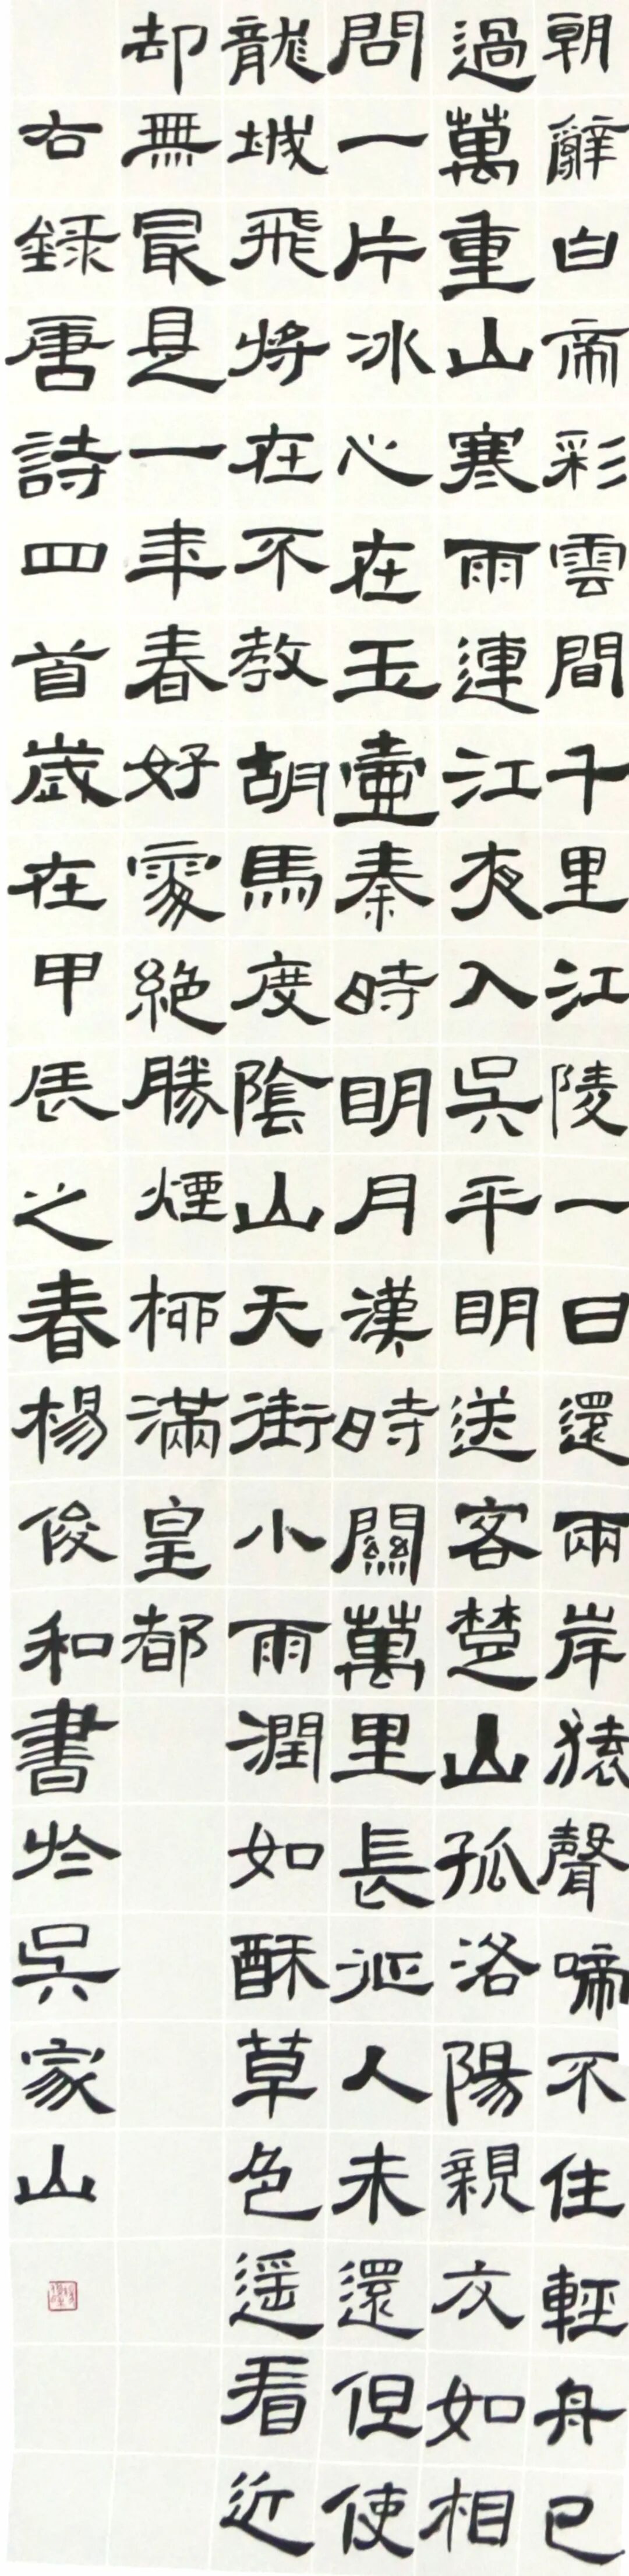 朝辭白帝彩雲間千里江陵一日還兩岸猿聲啼不住輕舟已
過萬重山寒雨連江夜入吳平明送客楚山孤洛陽親友如相
問一片冰心在玉壺秦時明月漢時關萬里長征人未還但使
龍城飛將在不教胡馬度陰山天街小雨潤如酥草色遥看近
却無最是一年春好處絕勝煙柳滿皇都
右録唐詩四首歲在甲辰之春楊俊和書於吳家山